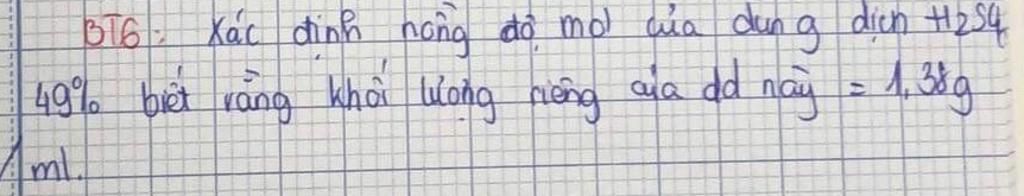 BT6: Xác định nồng độ mol của dung dịch H2SO4
49% biết rằng khối lượng riêng của dd này = 1,38g
/ml.